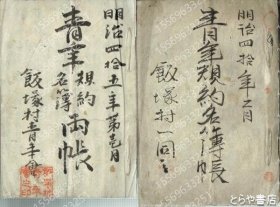 明治四拾五年第壱月
青年
規約
名簿
両帳
飯塚村青年會
明治四拾年二月
青年規約名簿帳
飯塚村一同
とらや書店